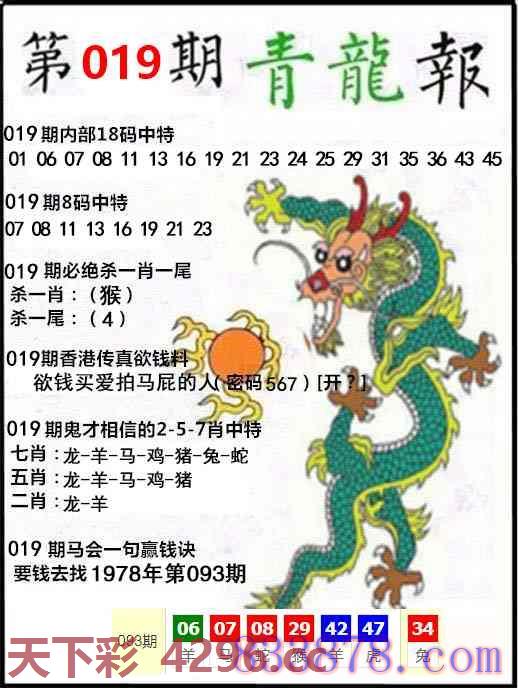 第019期青龍報
019期内部18码中特
01 06 07 08 11 13 16 19 21 23 24 25 29 31 35 36 43 45
019期8码中特
07 08 11 13 16 19 21 23
019 期必绝杀一肖一尾
杀一肖：（猴）
杀一尾：（4）
019期香港传真欲钱料
欲钱买爱拍马屁的人(密码567）[开？]
019期鬼才相信的2-5-7肖中特
七肖：龙-羊-马-鸡-猪-兔-蛇
五肖：龙-羊-马-鸡-猪
二肖：龙-羊
019 期马会一句赢钱诀
要钱去找1978年第093期
093期 06 07 08 29 42 47 34
羊 马 蛇 猴 羊 虎 兔
天下彩 4296.cc